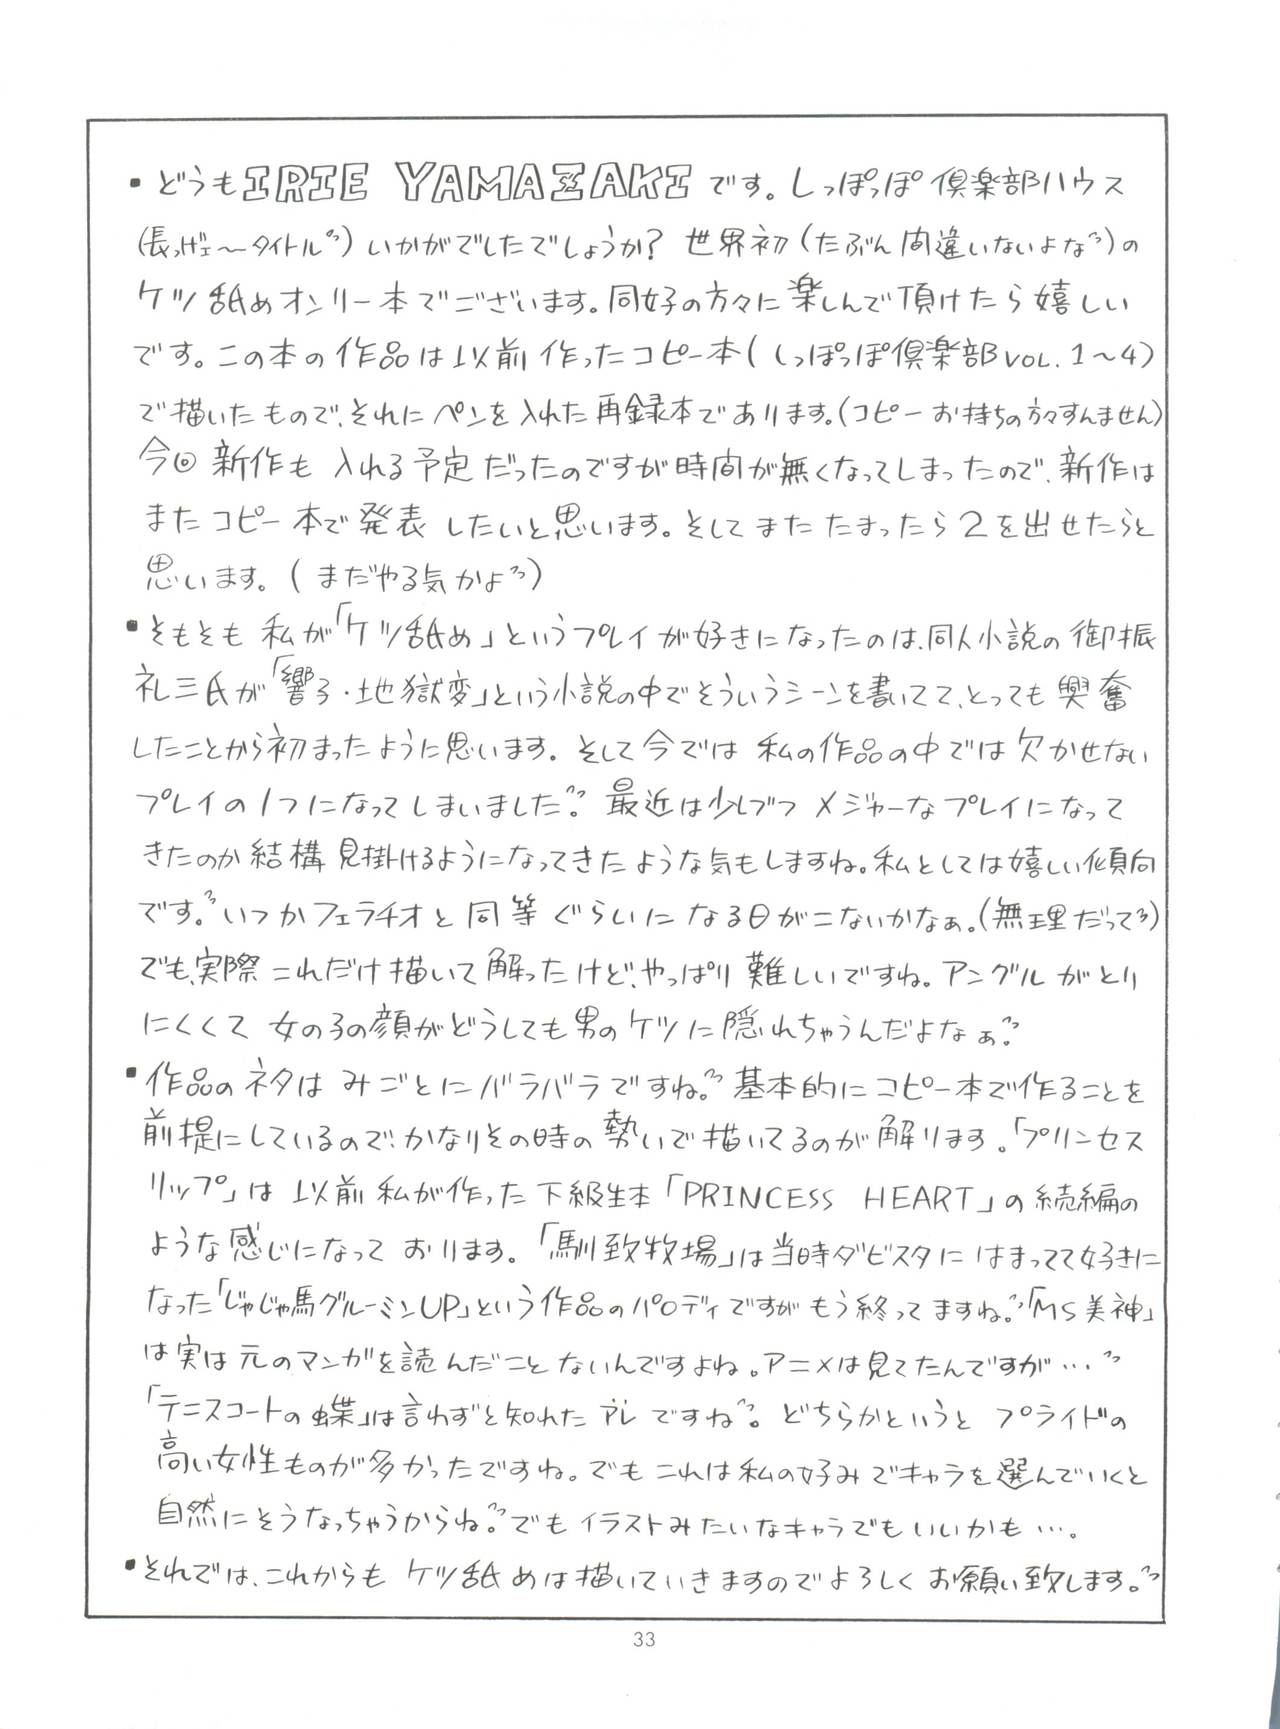 ・どうもIRIE YAMAZAKIです。しっぽっぽ倶楽部ハウス
(長っげェ～タイトル〃)いかがでしたでしょうか? 世界初(たぶん間違いないよな〃)の
ケツ舐めオンリー本でございます。同好の方々に楽しんで頂けたら嬉しい
です。この本の作品は以前作ったコピー本(しっぽっぽ倶楽部VOL.1～4)
で描いたもので、それにペンを入れた再録本であります。(コピーお持ちの方々すんません)
今回新作も入れる予定だったのですが時間が無くなってしまったので、新作は
またコピー本で発表したいと思います。そしてまたたまったら2を出せたらと
思います。(まだやる気かよ〃)
・そもそも私が「ケツ舐め」というプレイが好きになったのは、同人小説の御振
礼三氏が「響子・地獄変」という小説の中でそういうシーンを書いてて、とっても興奮
したことから初まったように思います。そして今では私の作品の中では欠かせない
プレイの1つになってしまいました〃。最近は少しづつメジャーなプレイになって
きたのか結構見掛けるようになってきたような気もしますね。私としては嬉しい傾向
です。〃いつかフェラチオと同等ぐらいになる日がこないかなぁ。(無理だって〃)
でも、実際これだけ描いて解ったけど、やっぱり難しいですね。アングルがとり
にくくて女の子の顔がどうしても男のケツに隠れちゃうんだよなぁ〃。
・作品のネタはみごとにバラバラですね。〃基本的にコピー本で作ることを
前提にしているので、かなりその時の勢いで描いてるのが解ります。「プリンセス
リップ」は以前私が作った下級生本「PRINCESS HEART」の続編の
ような感じになっております。「馴致牧場」は当時ダビスタにはまってて好きに
なった「じゃじゃ馬グルーミンUP」という作品のパロディですがもう終ってますね。〃「MS美神」
は実は元のマンガを読んだことないんですよね。アニメは見てたんですが…〃
「テニスコートの蝶」は言わずと知れたアレですね〃。どちらかというとプライドの
高い女性ものが多かったですね。でもこれは私の好みでキャラを選んでいくと
自然にそうなっちゃうからね。〃でもイラストみたいなキャラでもいいかも…。
・それでは、これからもケツ舐めは描いていきますのでよろしくお願い致します。〃
33